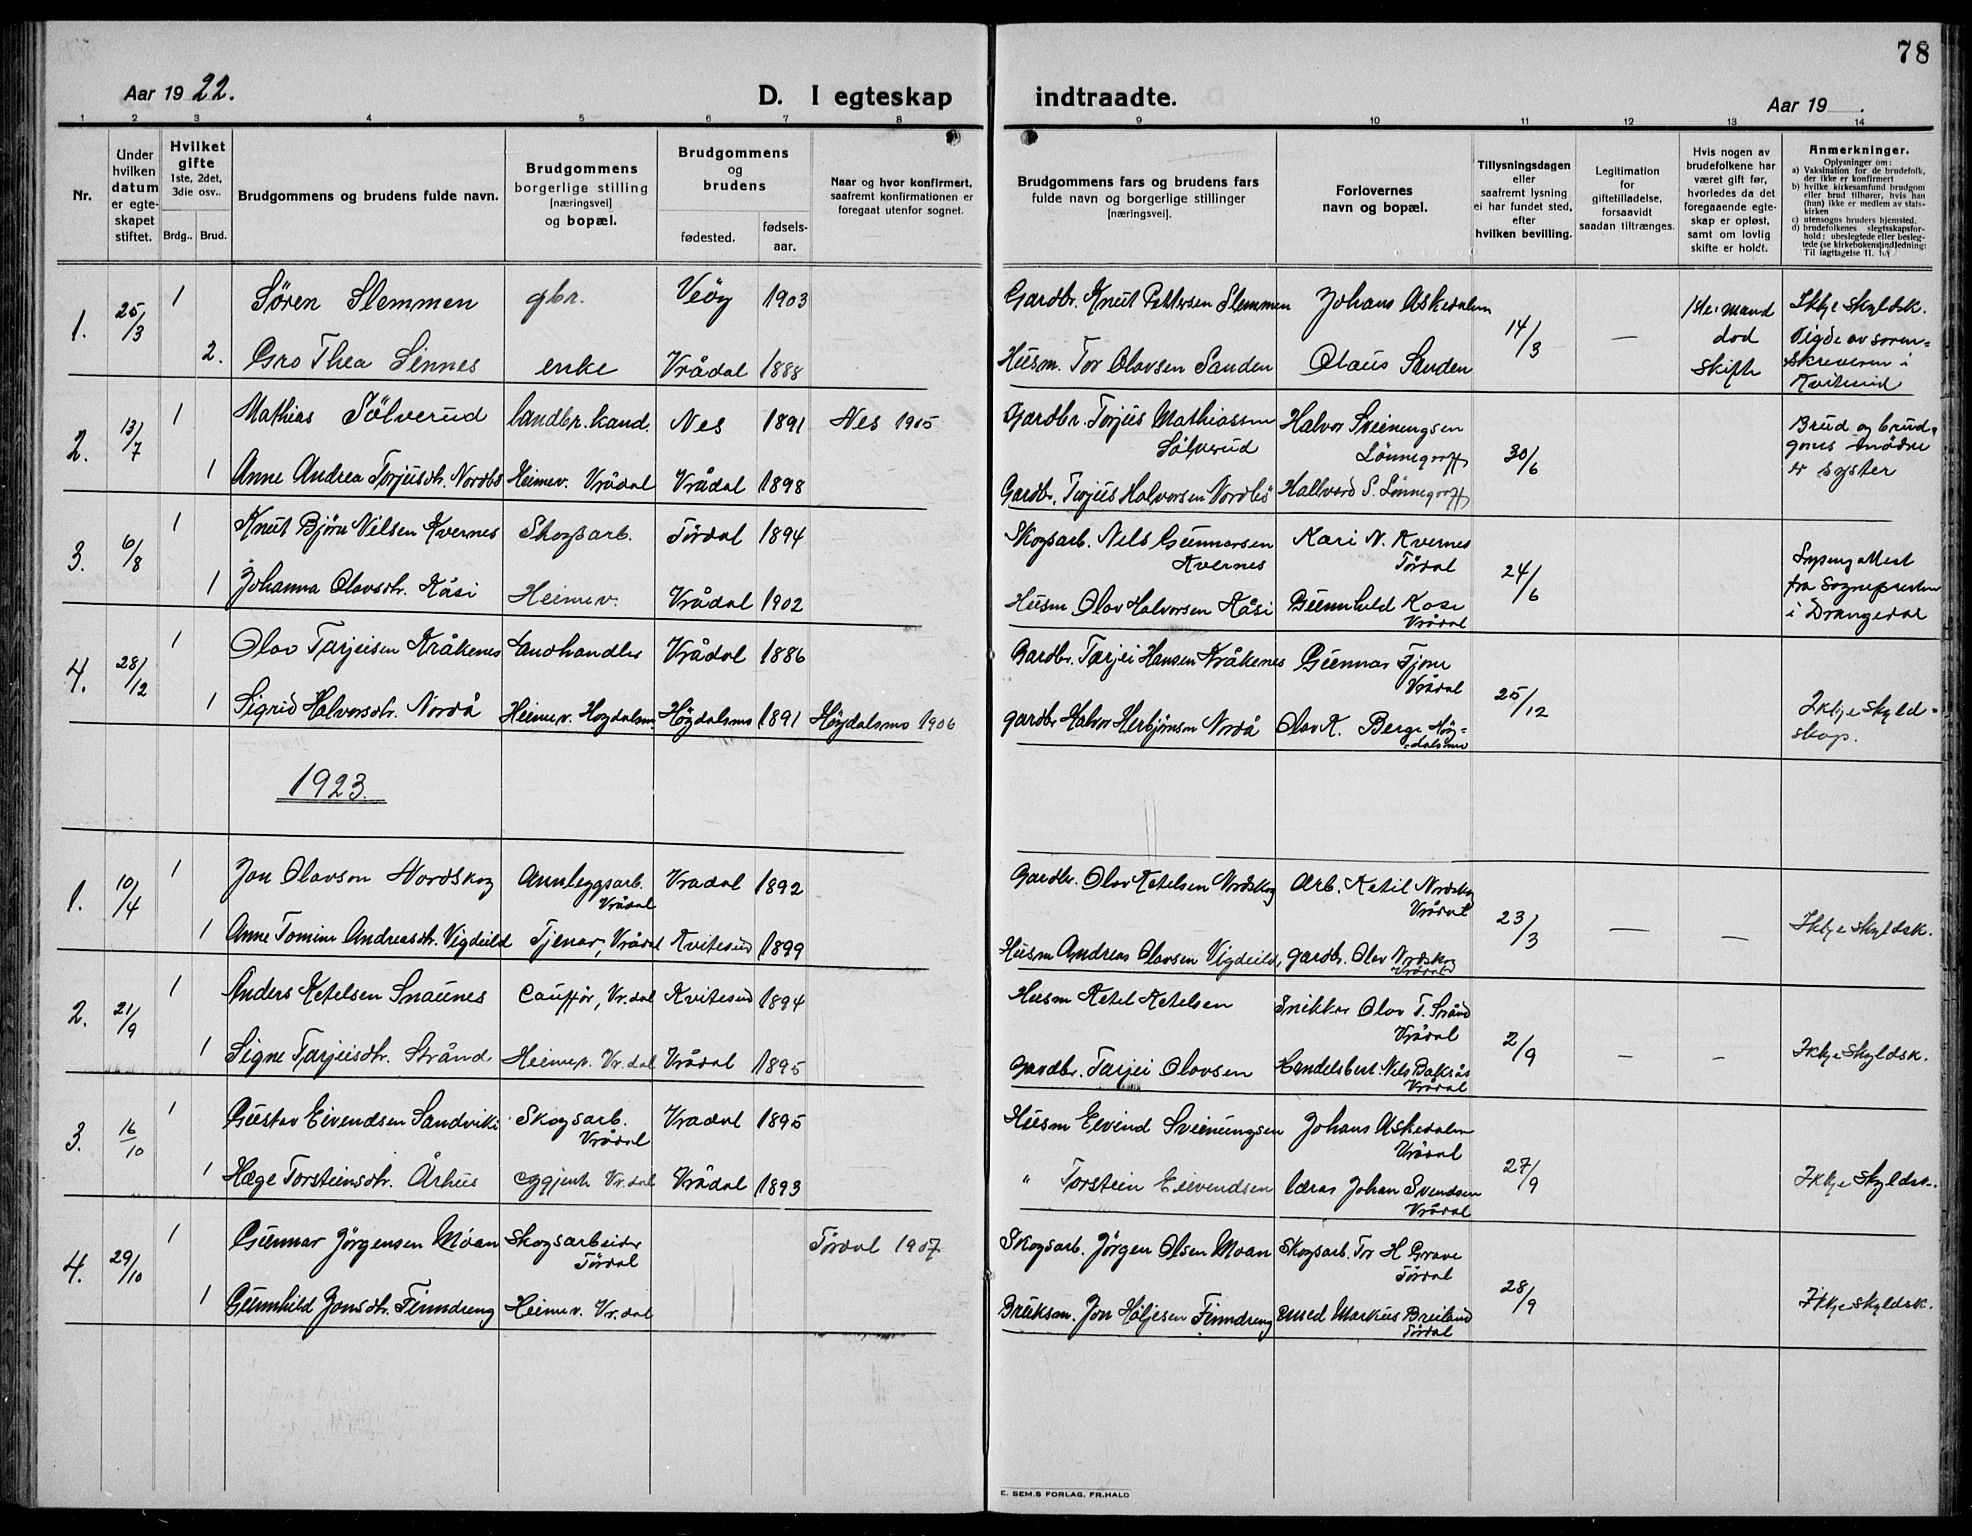 78
Aar 19 22.
D. I egteskap indtraadte.
Aar 19 .
1 2 3 4 5 6 7 8 9 10 11 12 13 14
Nr.
Under hvilken datum er egte-skapet stiftet.
Hvilket gifte 1ste, 2det, 3die osv..
Brdg.. Brud.
Brudgommens og brudens fulde navn.
Brudgommens borgerlige stilling [næringsvei] og bopæl.
Brudgommens og brudens
fødested. fødsels-aar.
Naar og hvor konfirmert, saafremt konfirmationen er foregaat utenfor sognet.
Brudgommens fars og brudens fars fulde navn og borgerlige stillinger [næringsvei].
Forlovernes navn og bopæl.
Tillysningsdagen eller saafremt lysning ei har fundet sted, efter hvilken bevilling.
Legitimation for giftetilladelse, forsaavidt saadan tiltrænges.
Hvis nogen av brudefolkene har været gift før, hvorledes da det foregaaende egte-skap er opløst, samt om lovlig skifte er holdt.
Anmerkninger.
Oplysninger om:
a) Vaksination for de brudefolk, der ikke er konfirmert
b) hvilke kirkesamfund brudgom eller brud tilhører, hvis han (hun) ikke er medlem av stats-kirken
c) utensogns bruders hjemsted.
d) brudefolkenes slegtsskapsfor-hold: ubeslegtede eller besleg-tede (se kirkebokens indledning: Til iagttagelse II. 10)
1. 25/3 1 Søren Slemmen gbr. Veøy 1903 Gardbr. Knut Pettersen Slemmen Johans Askedalen 14/3 — 1ste mand død skifte Ikkje skyldsk. Vigde av soren-skriveren i Kviteseid
2. Gro Thea Sinnes enke Vrådal 1888 Husm. Tor Olavsen Sanden Olaus Sanden
2. 13/7 1 Mathias Sölverud landbr. kand. Nes 1891 Nes 1905 Gardbr. Torjus Mathiassen Sölverud Halvor Sveinungsen Lönnegraff 30/6 Brud og brud-goms mödre er syster
1 Anne Andrea Torjusdtr. Nordbö Heimev. Vrådal Vrådal 1898 Gardbr. Torjus Halvorsen Nordbö Hallvard S. Lönnegraff
3. 6/8 1 Knut Bjørn Nilsen Kvernes Skogsarb. Tördal 1894 Skogsarb. Nels Gunnarsen Kvernes Kari N. Kvernes Tördal 24/6 Lysingattest fra Sognepresten i Drangedal
1 Johanna Olavsdtr. Kåsi Heimev. Vrådal 1902 Husm Olav Halvorsen Kåsi Gunnhild Kåsi Vrådal
4. 28/12 1 Olav Tarjeisen Kråkenes Landhandler Vrådal 1886 Gardbr. Tarjei Hansen Kråkenes Gunnar Fjone Vrådal 25/12 Ikkje skyld-skap.
1 Sigrid Halvorsdtr. Nordå Heimev. Høydalsmo Höydalsmo 1891 Höydalsmo 1906 gardbr Halvor Herbjørnsen Nordå Olav K. Berge Höy-dalsmo
1923.
1. 10/4 1 Jon Olavson Nordskog Annleggsarb. Vrådal Vradal 1892 Gardbr. Olav Ketelsen Nordskog Arb. Ketil Nordskog Vrådal 23/3 — — Ikkje skyldsk.
1 Anne Tomine Andreasdtr. Vigdeild Tjenar, Vrådal Kvitesud 1899 Husm Andreas Olavsen Vigdeild, gardbr. Olav Nordskog Vrådal
2. 21/9 1 Anders Ketelsen Snaunes Cauffør, Vr.dal Kvitesud 1894 Husm Ketel Ketelsen Snikkar Olav T. Strånd Vrådal 2/9 — — Ikkje skyldsk.
1 Signe Tarjeisdtr. Strånd Heimev. Vr.dal Vrådal 1895 Gardbr. Tarjei Olavsen Handelsbest. Nils Bakås Vrådal
3. 16/10 1 Gustav Eivendsen Sandviki Skogsarb. Vrådal Vradal 1895 Husm Eivind Sveinungsen Johans Askedalen Vrådal 27/9 Ikkje skyldsk.
1 Hæge Torsteinsdtr. Århus Vr.dal Vrådal 1893 " Torstein Eievendsen Lærar Johan Svendsen Vrådal
4. 29/10 1 Gunnar Jörgensen Moan Skogsarbeider Tördal Tördal 1907 Skogsarb. Jörgen Olsen Moan Skogsarb. Tor H Grave Tördal 28/9 Ikkje skyldsk.
1 Gunnhild Jonsdtr. Finndreng Heimev. Vr.dal Bruksm. Jon Höljesen Finndreng Markus Breiland Tördal
E. SEM.S FORLAG, FR.HALD